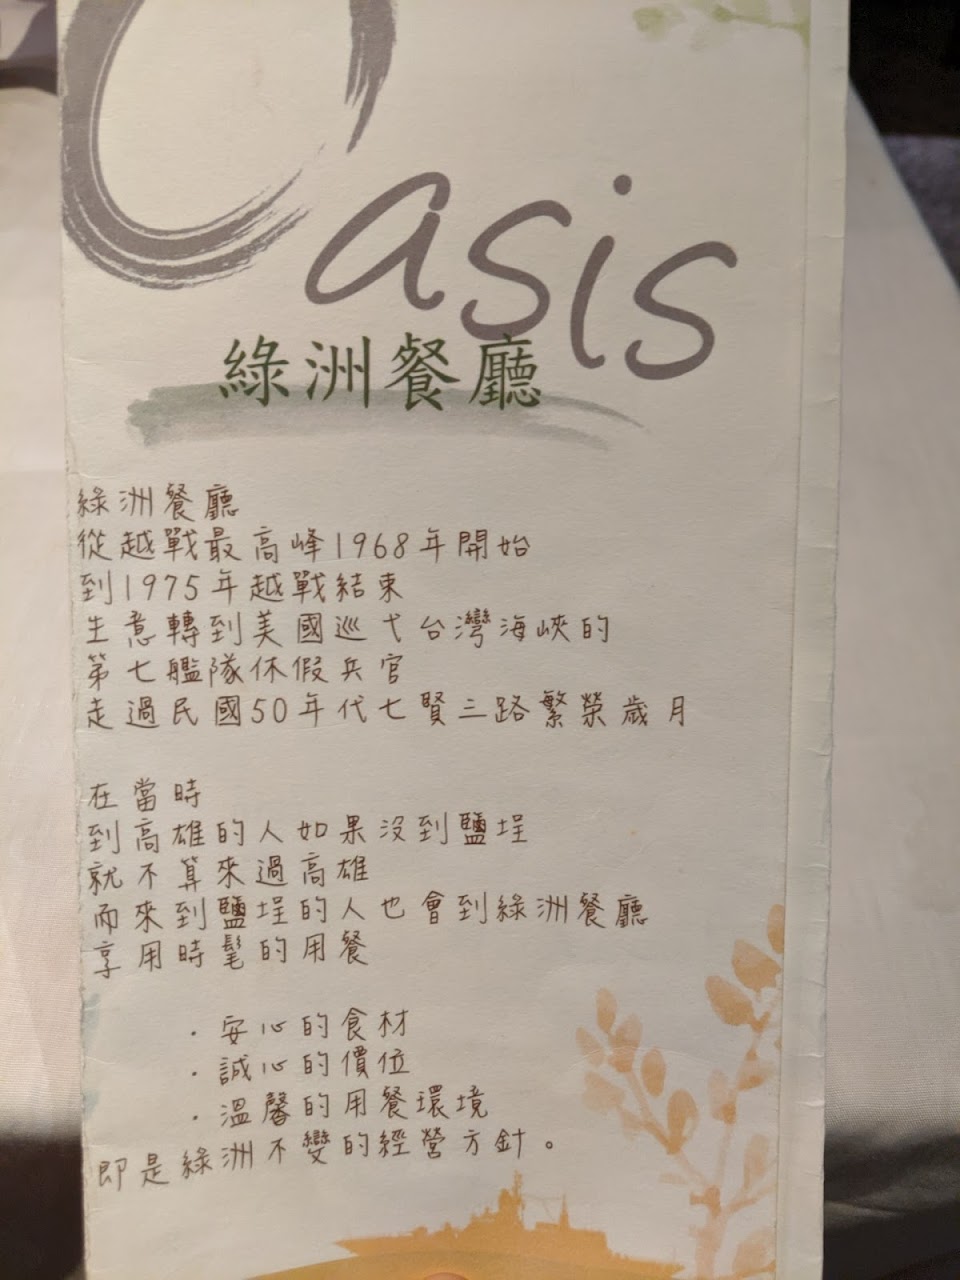 Oasis
綠洲餐廳
綠洲餐廳
從越戰最高峰1968年開始
到1975年越戰結束
生意轉到美國巡弋台灣海峽的
第七艦隊休假兵官
走過民國50年代七賢三路繁榮歲月
在當時
到高雄的人如果沒到鹽埕
就不算來過高雄
而來到鹽埕的人也會到綠洲餐廳
享用時髦的用餐
．安心的食材
．誠心的價位
．溫馨的用餐環境
即是綠洲不變的經營方針。